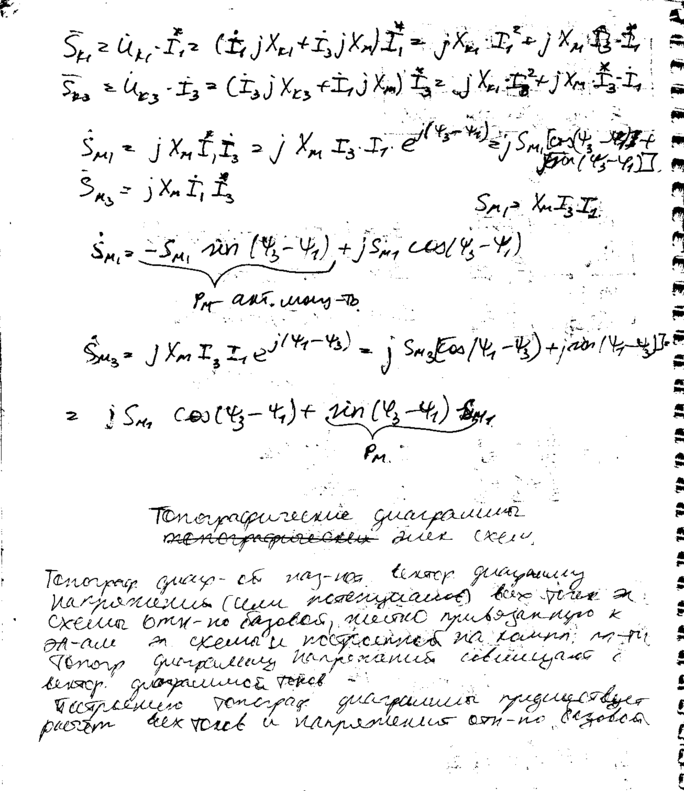 S̄к1 = U̇к1 · I₁* = (İ₁ jXк1 + İ₃ jXм) I₁* = jXк1 · I₁² + jXм İ₃ · I₁*
S̄к3 = U̇к3 · İ₃ = (İ₃ jXк3 + İ₁ jXм) I₃* = jXк1 · I₃² + jXм I₃* · İ₁
Ṡм1 = jXм I₁* İ₃ = j Xм I₃ · I₁ · e^{j(Ψ₃-Ψ₁)} = j Sм1 [cos(Ψ₃ - Ψ₁) +
jsin(Ψ₃-Ψ₁)].
Ṡм3 = jXм İ₁ I₃*
Sм1 = Xм I₃ I₁
Ṡм1 = -Sм1 sin(Ψ₃-Ψ₁) + jSм1 cos(Ψ₃-Ψ₁)
Pм - акт. мощ-ть
Ṡм3 = jXм I₃ I₁ e^{j(Ψ₁-Ψ₃)} = j Sм3[cos(Ψ₁-Ψ₃) + jsin(Ψ₁-Ψ₃)] =
= j Sм1 cos(Ψ₃-Ψ₁) + sin(Ψ₃-Ψ₁) Sм1
Pм.
Топографические диаграммы
элек схем.
Топограф диагр-ой наз-ют вектор диаграмму
напряжения (или потенциалов) всех точек эл
схемы отн-но базовой, жестко привязанную к
эл-там эл схемы и построенной на компл. пл-ти
Топогр диаграмму напряжений совмещают с
вектор. диаграммой токов
Построению топограф диаграммы предшествует
расчет всех токов и напряжения отн-но базовой